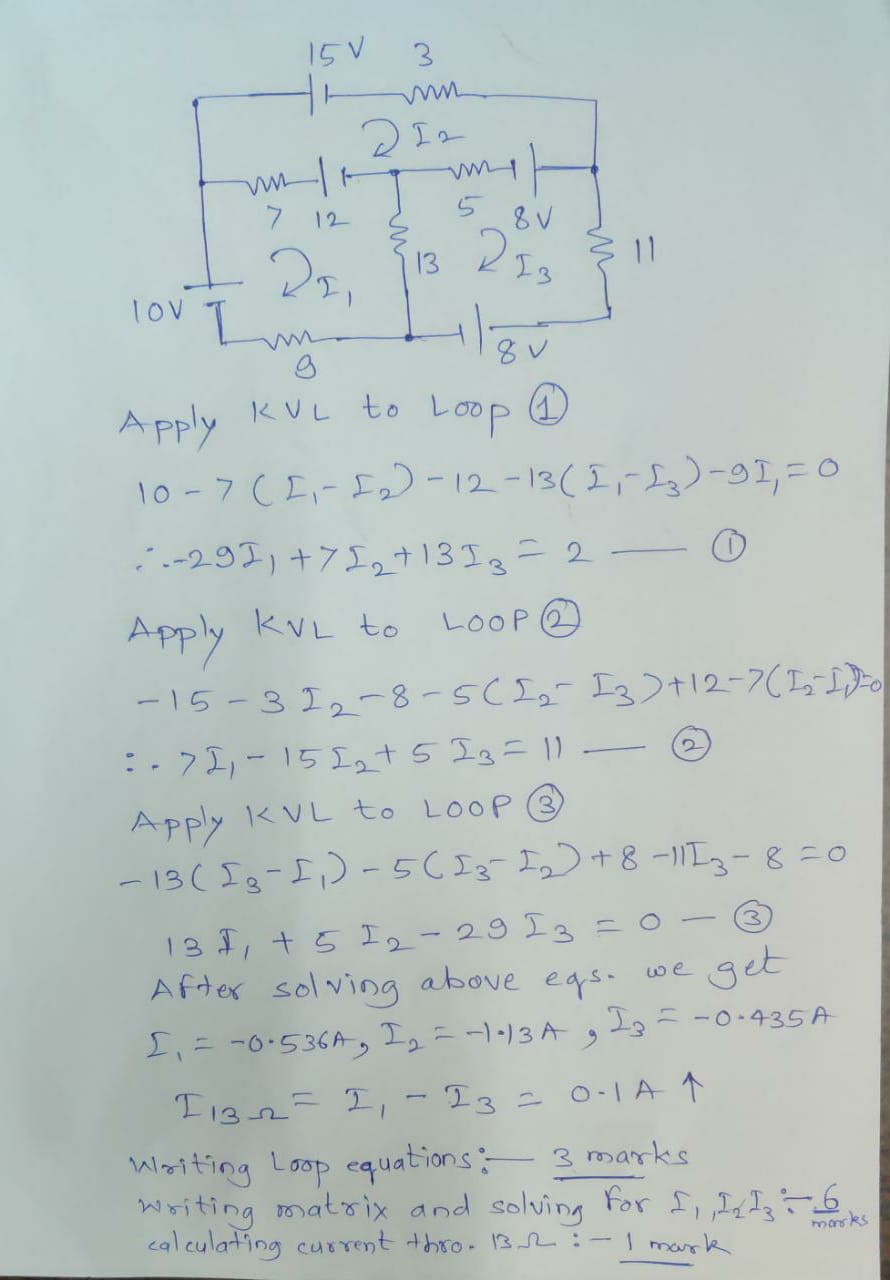 15V 3
I2
7 12 5 8V
13 I3 11
I1
10V
9 8V
Apply KVL to Loop ①
10 - 7 (I1 - I2) - 12 - 13(I1 - I3) - 9I1 = 0
∴ -29I1 + 7I2 + 13I3 = 2 — ①
Apply KVL to LOOP ②
-15 - 3I2 - 8 - 5(I2 - I3) + 12 - 7(I2 - I1) = 0
∴ 7I1 - 15I2 + 5I3 = 11 — ②
Apply KVL to LOOP ③
-13(I3 - I1) - 5(I3 - I2) + 8 - 11I3 - 8 = 0
13I1 + 5I2 - 29I3 = 0 — ③
After solving above eqs. we get
I1 = -0.536A, I2 = -1.13A, I3 = -0.435A
I13Ω = I1 - I3 = 0.1A ↑
Writing Loop equations :- 3 marks
Writing matrix and solving for I1, I2 I3 :- 6 marks
calculating current thro. 13Ω :- 1 mark